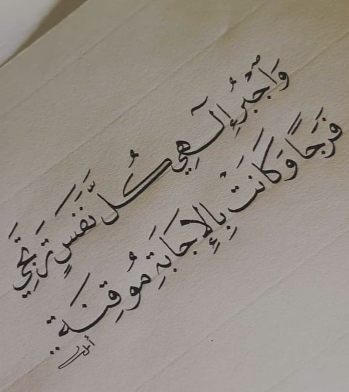 وَاجْبُرْ إِلَٰهِي كُلَّ نَفْسٍ تَرْتَجِي
فَرَجًا وَكَانَتْ بِالإِجَابَةِ مُوقِنَة